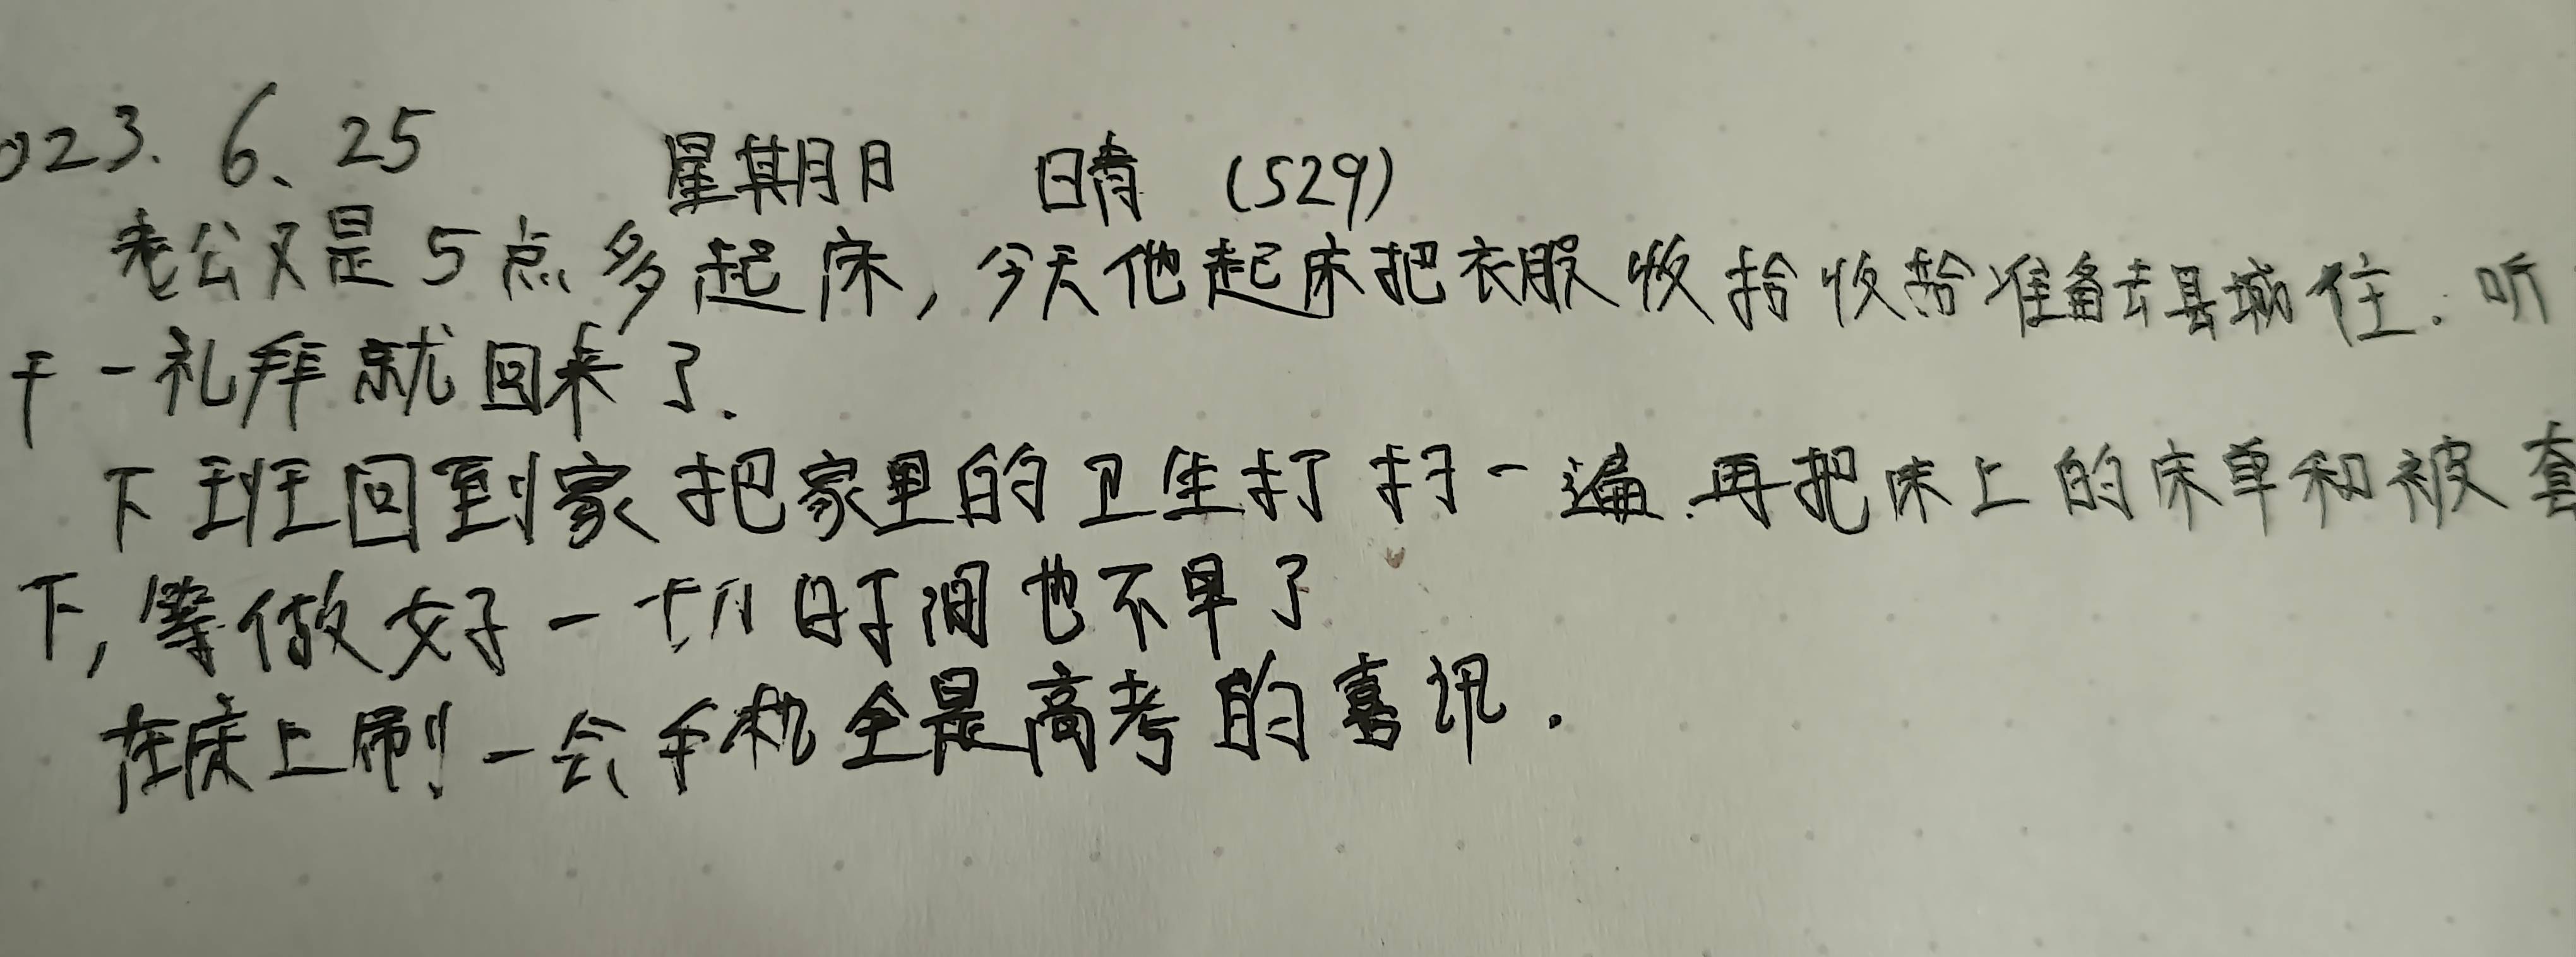 023.6.25 星期日 晴 (529)
老公又是5点多起床,今天他起床把衣服收拾收拾准备去县城住.听
干一礼拜就回来了.
下班回到家把家里的卫生打扫一遍.再把床上的床单和被套
下,等做好一切时间也不早了
在床上刷一会手机全是高考的喜讯.